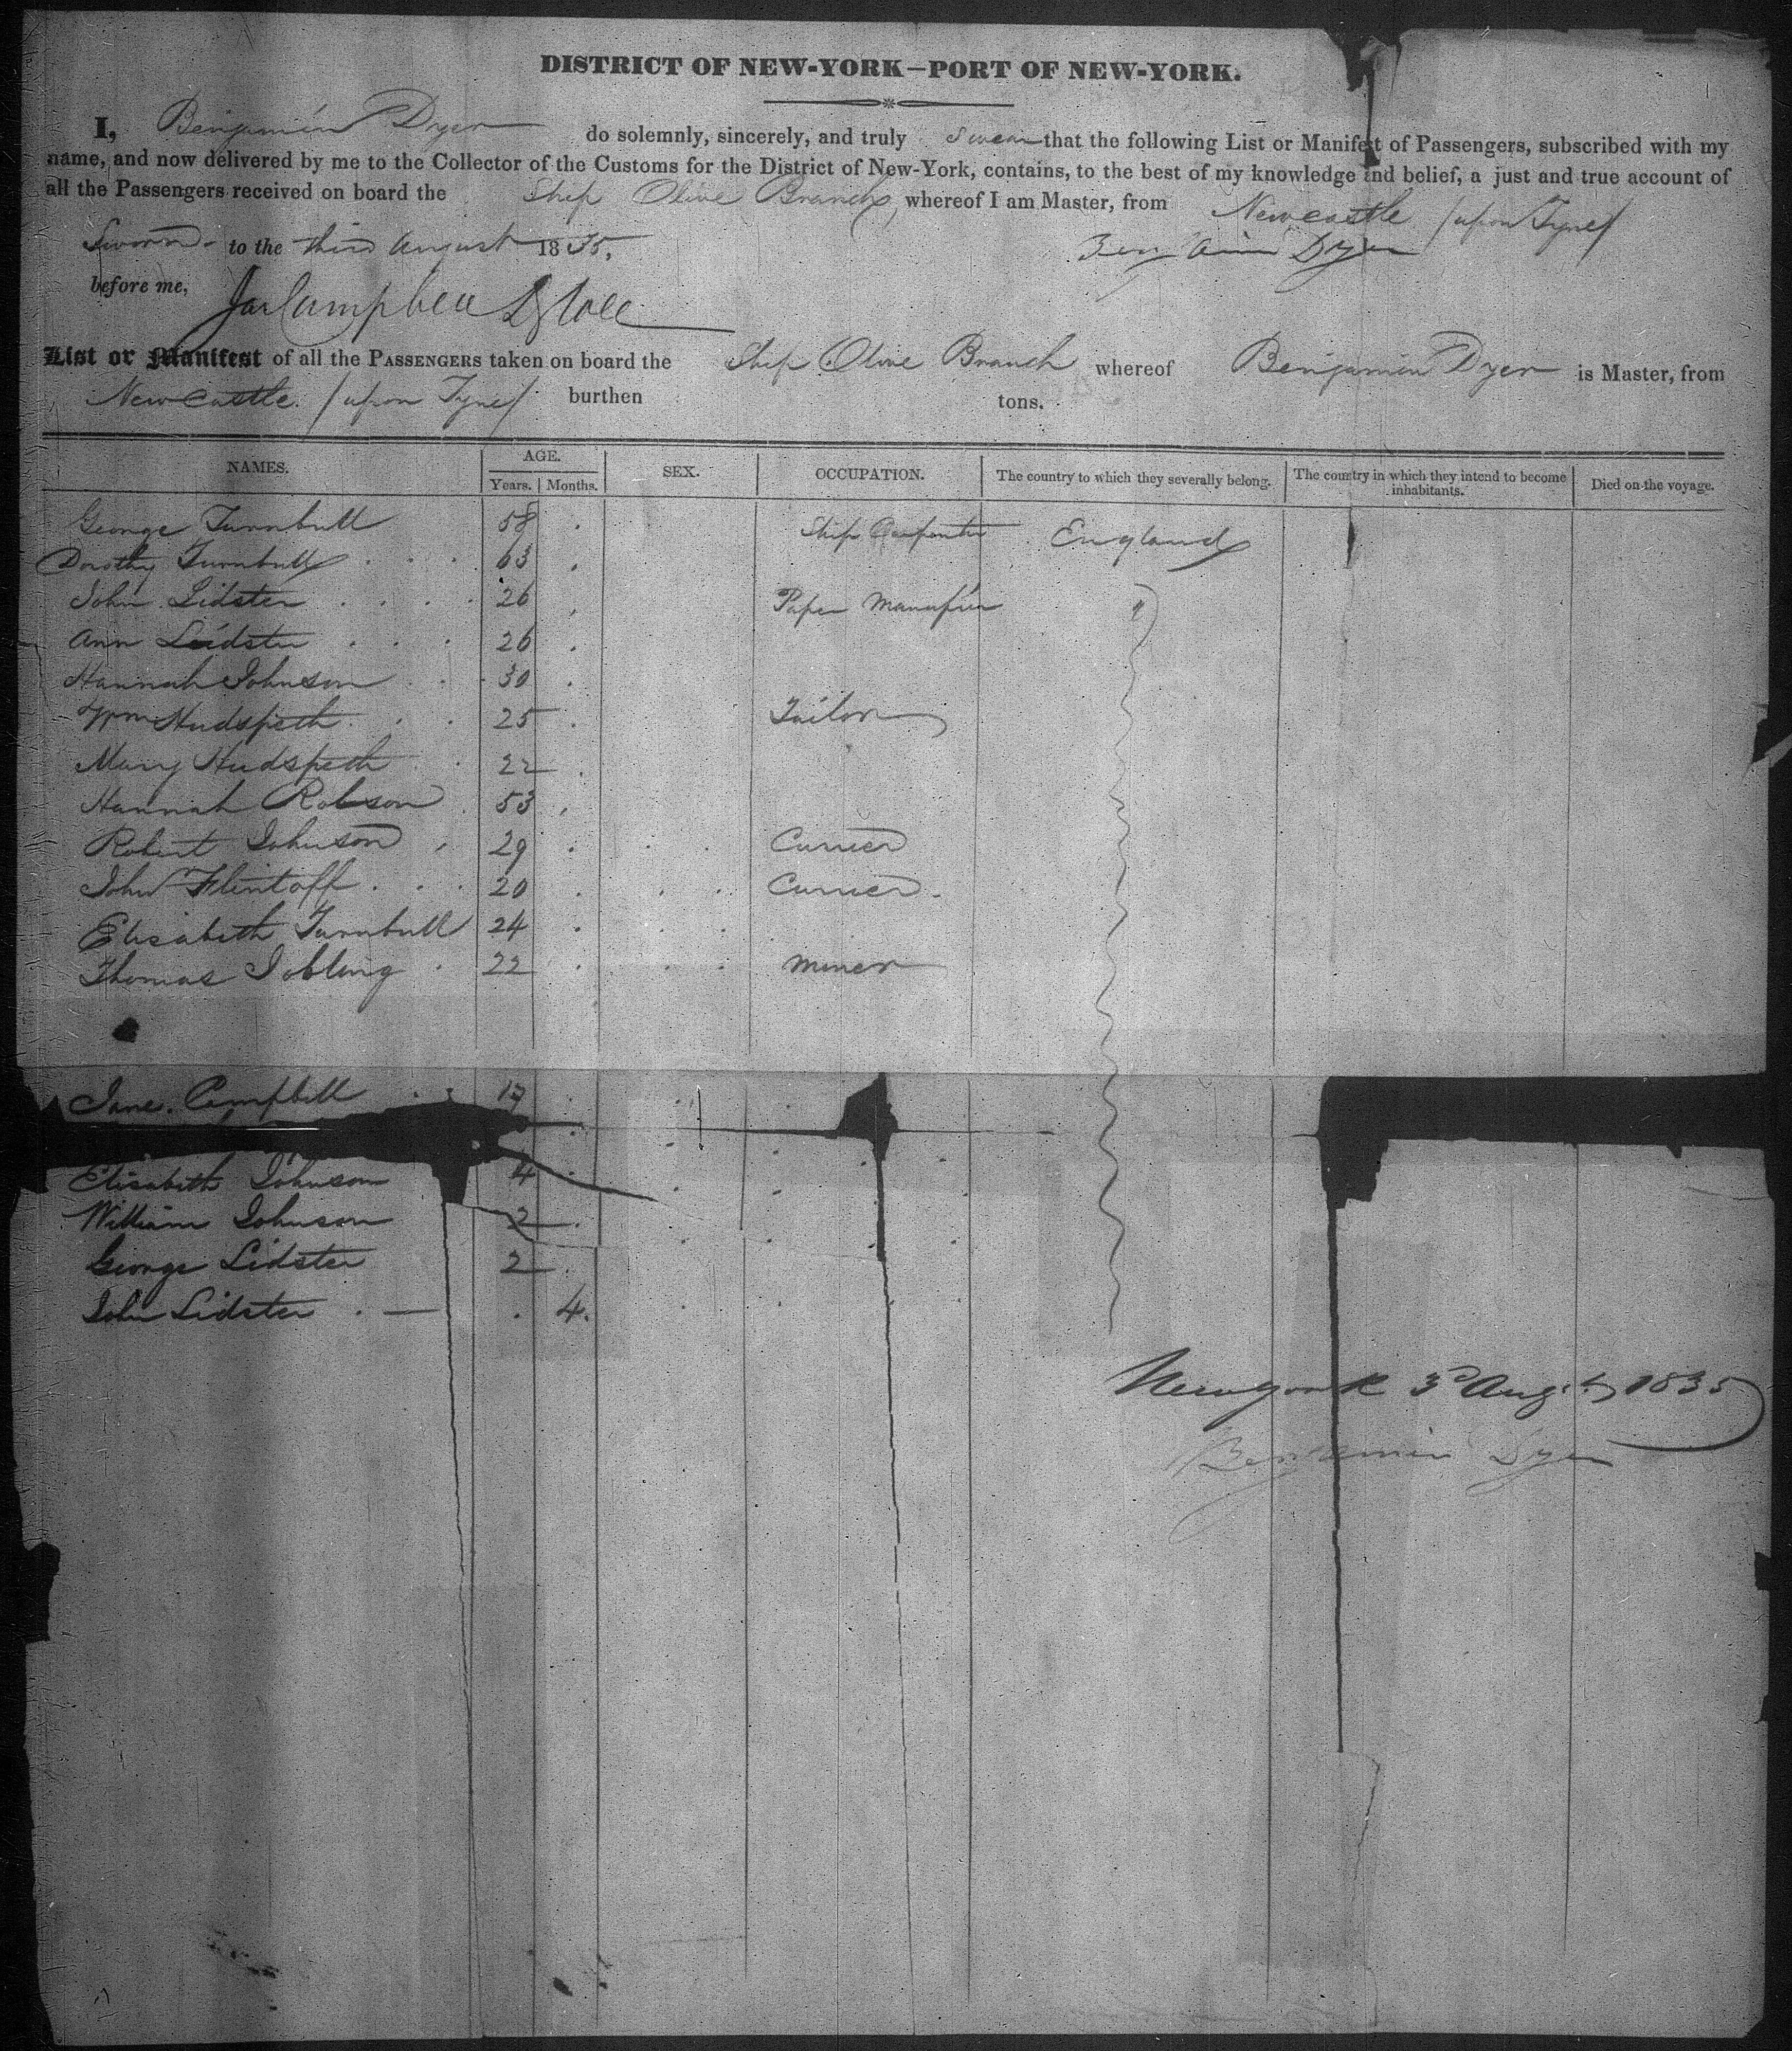 DISTRICT OF NEW-YORK—PORT OF NEW-YORK.
I, Benjamin Dyer do solemnly, sincerely, and truly swear that the following List or Manifest of Passengers, subscribed with my
name, and now delivered by me to the Collector of the Customs for the District of New-York, contains, to the best of my knowledge and belief, a just and true account of
all the Passengers received on board the Ship Olive Branch, whereof I am Master, from Newcastle /upon Tyne/
Sworn to the third August 1835, Benjamin Dyer
before me, Jas Campbell
List or Manifest of all the PASSENGERS taken on board the Ship Olive Branch whereof Benjamin Dyer is Master, from
Newcastle /upon Tyne/ burthen tons.
NAMES. AGE. Years. Months. SEX. OCCUPATION. The country to which they severally belong. The country in which they intend to become inhabitants. Died on the voyage.
George Turnbull 58 Ship Carpenter England
Dorothy Turnbull 63
John Lidster 26 Paper "
Ann Lidster 26
Hannah Johnson 30
Wm Hudspeth 25 Tailor
Mary Hudspeth 22
Hannah Robson 53
Robert Johnson 29 Currier
John Flintoff 20 Currier
Elisabeth Turnbull 24
Thomas Jobling 22 miner
Jane Campbell 17
Elisabeth Johnson 4
William Johnson 2
George Lidster 2
John Lidster 4.
New york 3d Augt 1835
Benjamin Dyer